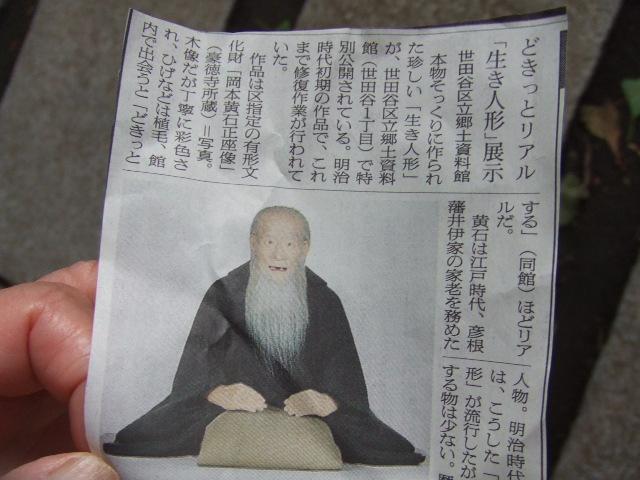 どきっとリアル
「生き人形」展示
世田谷区立郷土資料館
本物そっくりに作られ
た珍しい「生き人形」
が、世田谷区立郷土資料
館（世田谷１丁目）で特
別公開されている。明治
時代初期の作品で、これ
まで修復作業が行われて
いた。
作品は区指定の有形文
化財「岡本黄石正座像」
（豪徳寺所蔵）＝写真。
木像だが丁寧に彩色さ
れ、ひげなどは植毛、館
内で出会うと「どきっと
する」（同館）ほどリア
ルだ。
黄石は江戸時代、彦根
藩井伊家の家老を務めた
人物。明治時
は、こうした「
形」が流行したが
する物は少ない。